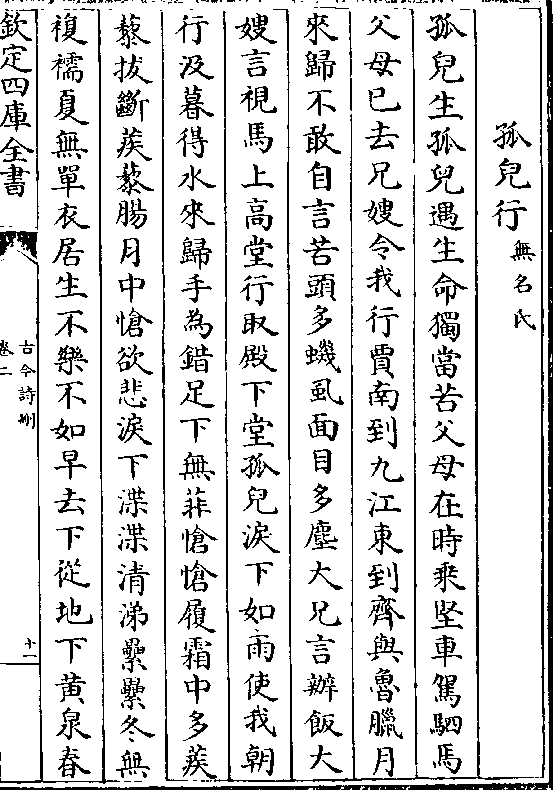 孤兒行無名氏
孤兒生孤兒遇生命獨當苦父母在時乘堅車駕駟馬
父母已去兄嫂令我行賈南到九江東到齊與魯臘月
來歸不敢自言苦頭多蟣虱面目多塵大兄言辦飯大
嫂言視馬上高堂行取殿下堂孤兒淚下如雨使我朝
行汲暮得水來歸手為錯足下無菲愴愴履霜中多蒺
藜拔斷蒺藜腸月中愴欲悲淚下渫渫清涕纍纍冬無
複襦夏無單衣居生不樂不如早去下從地下黃泉春
欽定四庫全書
古今詩刪
卷二
十一